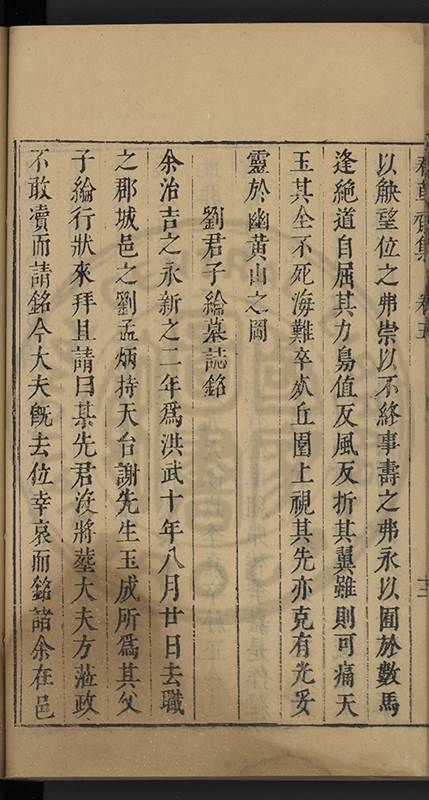 以觖望位之弗崇以不終事壽之弗永以囿於數馬
逢絶道自屈其力鳥值反風反折其翼雖則可痛天
玉其全不死海難卒㱕丘園上視其先亦克有光妥
靈於幽黃山之岡
劉君子綸墓誌銘
余治吉之永新之二年爲洪武十年八月廿日去職
之郡城邑之劉孟炳持天台謝先生玉成所爲其父
子綸行狀來拜且請曰某先君沒將塟大夫方蒞政
不敢瀆而請銘今大夫旣去位幸哀而銘諸余在邑